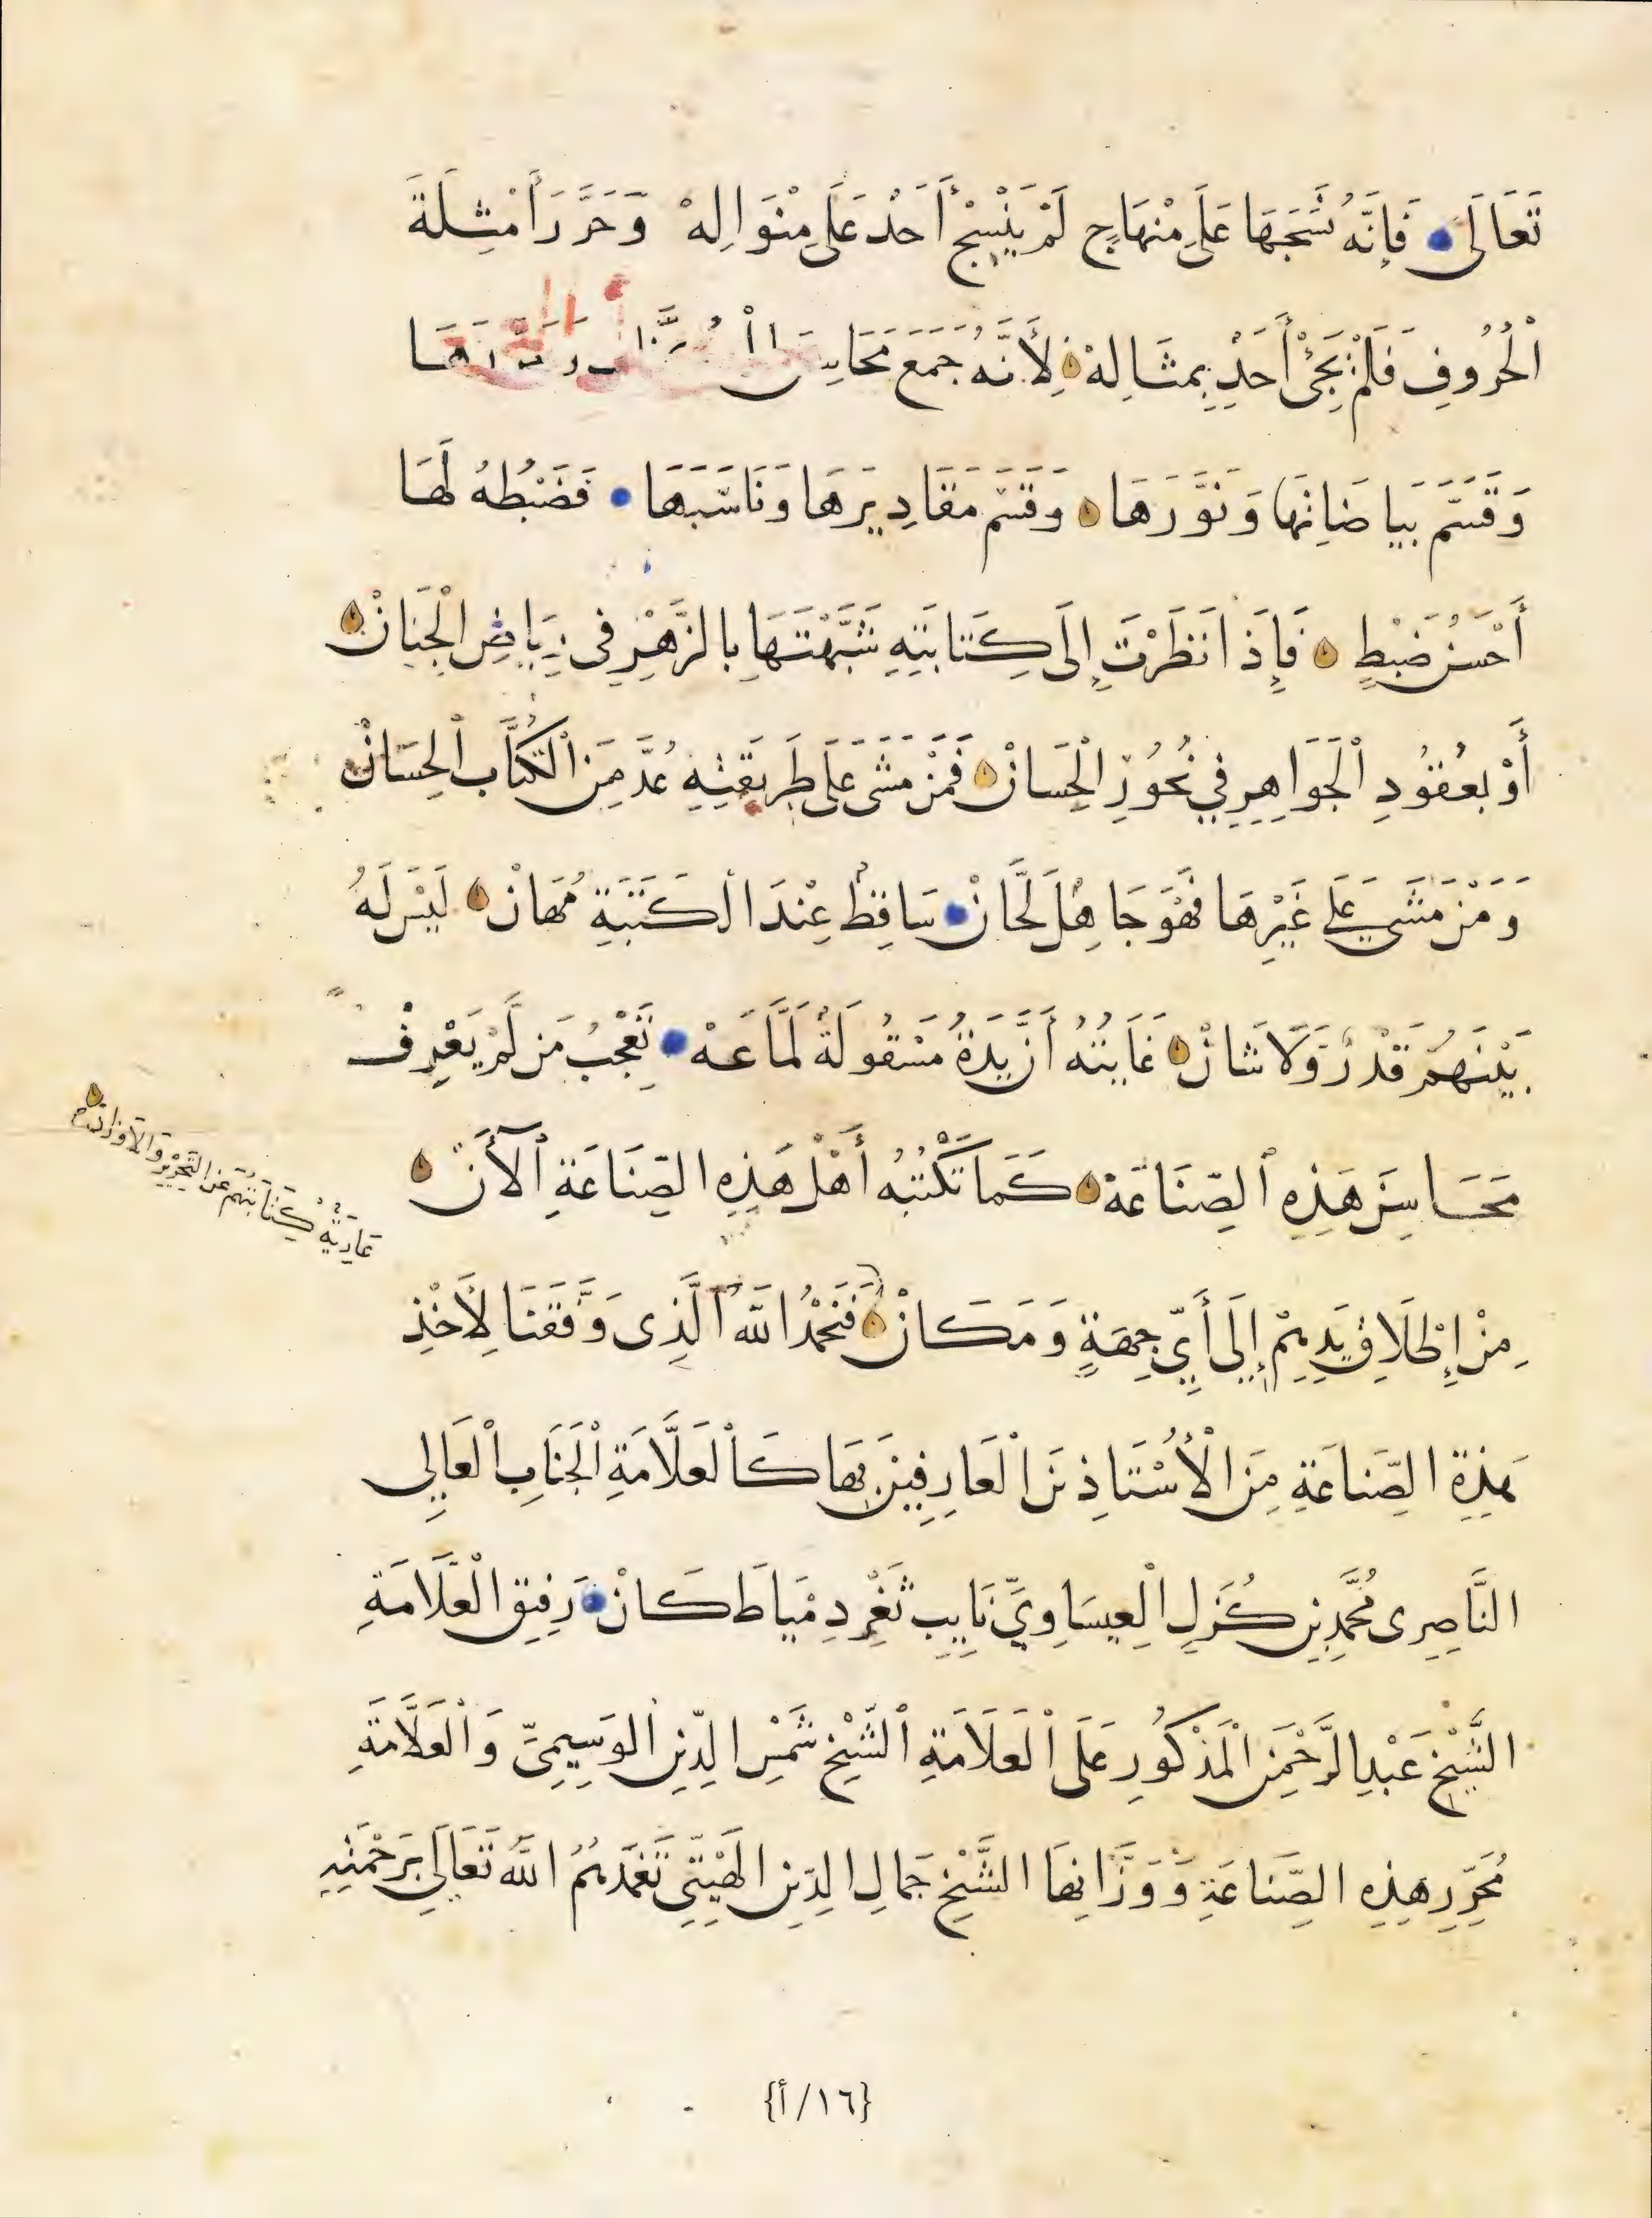 تَعَالَى فَإِنَّهُ نَسَجَهَا عَلَى مِنْهَاجٍ لَمْ يَنْسِجْ أَحَدْ عَلَى مِنْوَالِهْ وَحَرَّرَ أَمْثِلَةَ
ٱلْحُرُوفِ فَلَمْ يَجِئْ أَحَدْ بِمِثَالِهْ لِأَنَّهُ جَمَعَ مَحَاسِنَ
وَقَسَّمَ بَيَاضَاتِهَا وَنَوَّرَهَا وَقَسَّمَ مَقَادِيرَهَا وَنَاسَبَهَا فَضَبْطُهُ لَهَا
أَحْسَنُ ضَبْطٍ فَإِذَا نَظَرْتَ إِلَى كِتَابَتِهِ شَبَّهْتَهَا بِالزَّهْرِ فِي رِيَاضِ الْجِنَانْ
أَوْ بِعُقُودِ ٱلْجَوَاهِرِ فِي نُحُورِ الْحِسَانْ فَمَنْ مَشَى عَلَى طَرِيقَتِهِ عُدَّ مِنَ ٱلْكُتَّابِ ٱلْحِسَانْ
وَمَنْ مَشَى عَلَى غَيْرِهَا فَهْوَ جَاهِلْ لَحَّانْ سَاقِطْ عِنْدَ الْكَتَبَةِ مُهَانْ لَيْسَ لَهُ
بَيْنَهُمْ قَدْرٌ وَلَا شَانْ غَايَتُهُ أَنَّ يَدَهُ مَسْقُولَةْ لَمَّاعَهْ تُعْجِبُ مَن لَّمْ يَعْرِفْ
مَحَاسِنَ هَذِهِ ٱلصِّنَاعَةْ كَمَا تَكْتُبُهُ أَهْلُ هَذِهِ الصِّنَاعَةِ ٱلْآنَ
عَارِيَةٌ كِتَابَتُهُمْ عَنِ التَّحْرِيرِ وَالْأَوْزَانْ
مِنْ إِطْلَاقِ يَدِهِمْ إِلَى أَيِّ جِهَةٍ وَمَكَانْ فَنَحْمَدُ اللَّهَ ٱلَّذِى وَفَّقَنَا لِأَخْذِ
هَذِهِ الصِّنَاعَةِ مِنَ الْأُسْتَاذِينَ الْعَارِفِينَ بِهَا كَٱلْعَلَّامَةِ ٱلْجَنَابِ ٱلْعَالِي
النَّاصِرِى مُحَمَّدِ بْنِ كُزَلِ ٱلْعِيسَاوِيِّ نَايِبِ ثَغْرِ دِمْيَاطَ كَانْ رَفِيقِ الْعَلَّامَةِ
الشَّيْخِ عَبْدِ الرَّحْمَنِ الْمَذْكُورِ عَلَى ٱلْعَلَّامَةِ ٱلشَّيْخِ شَمْسِ الدِّينِ ٱلْوَسِيمِيِّ وَٱلْعَلَّامَةِ
مُحَرِّرِ هَذِهِ الصِّنَاعَةِ وَوَزَّانِهَا الشَّيْخِ جَمَالِ الدِّينِ الْهَيْتِيِّ تَغَمَّدَهُمُ اللَّهُ تَعَالَى بِرَحْمَتِهِ
{١٦/أ}